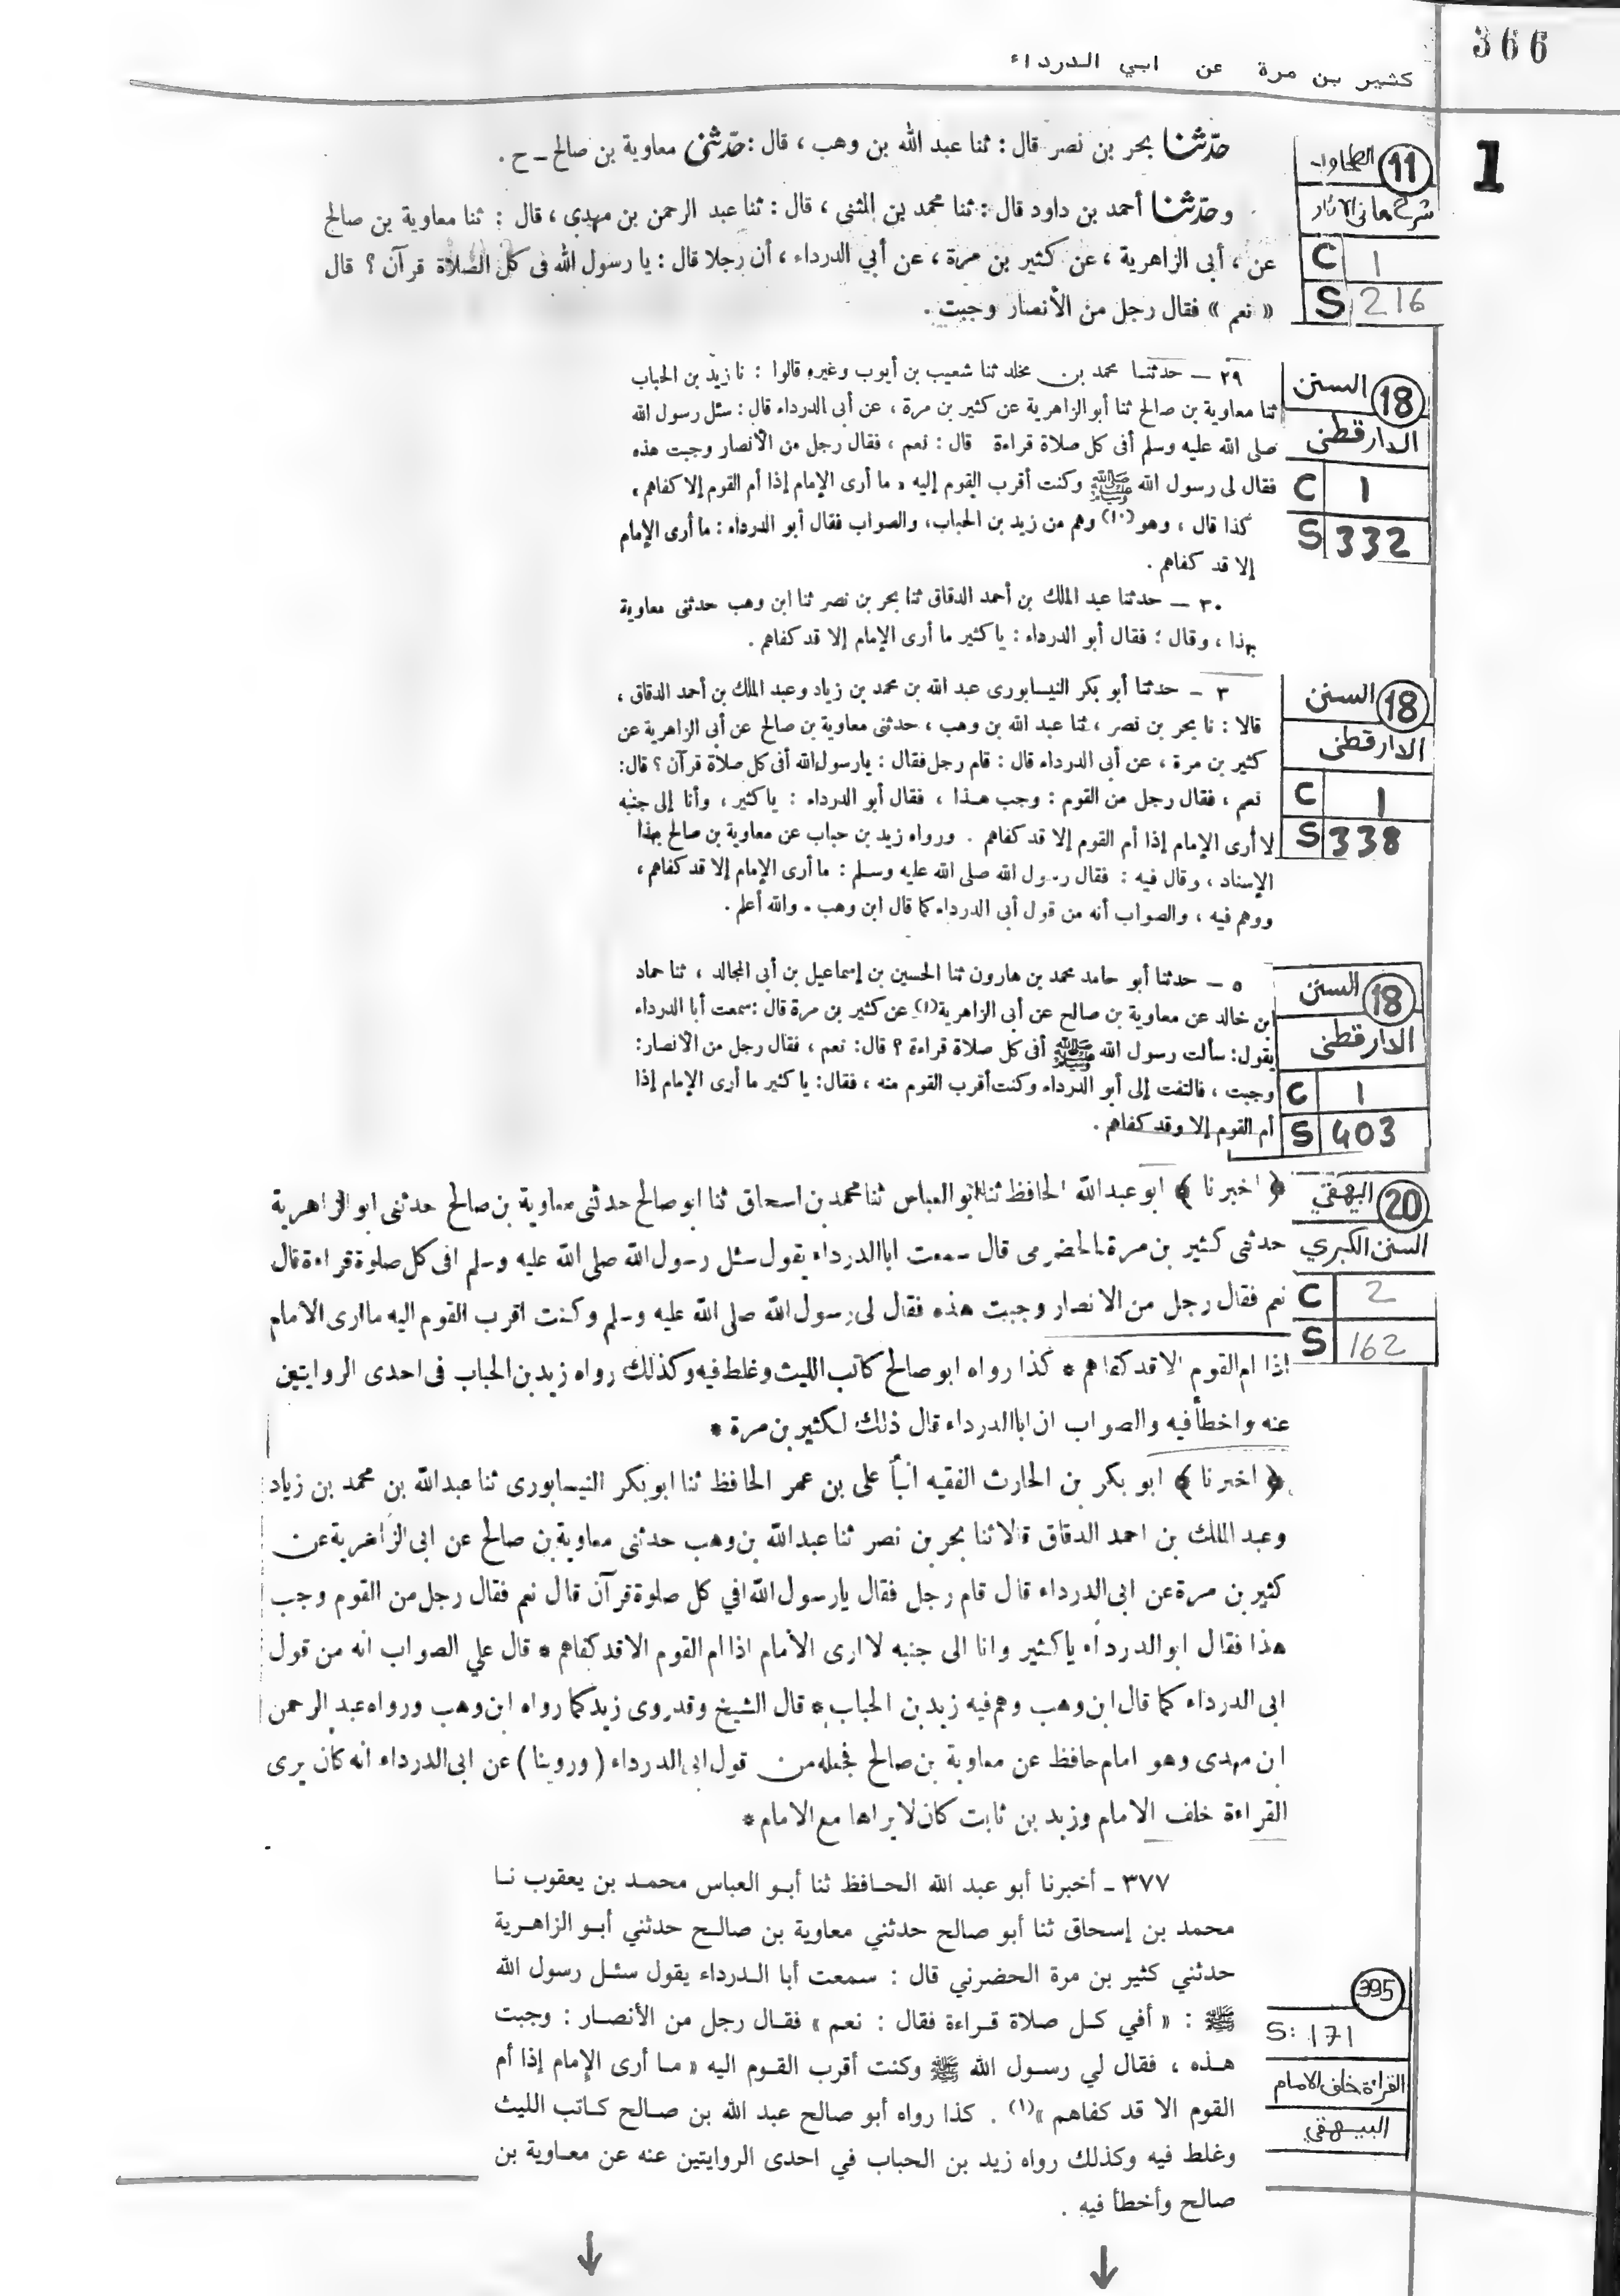 366
كثير بن مرة عن ابي الدرداء
1
11 الطحاوى
شرح معانى الاثار
C 1
S 216
حدّثنا بحر بن نصر قال : ثنا عبد الله بن وهب ، قال : حدّثنى معاوية بن صالح ـ ح .
وحدّثنا أحمد بن داود قال : ثنا محمد بن المثنى ، قال : ثنا عبد الرحمن بن مهدى ، قال : ثنا معاوية بن صالح
عن ، أبى الزاهرية ، عن كثير بن مرة ، عن أبي الدرداء ، أن رجلا قال : يا رسول الله فى كل الصلاة قرآن ؟ قال
« نعم » فقال رجل من الأنصار وجبت .
18 السنن
الدارقطنى
C 1
S 332
٢٩ ـ حدثنـا محمد بن مخلد ثنا شعيب بن أيوب وغيره قالوا : نا زيد بن الحباب
ثنا معاوية بن صالح ثنا أبو الزاهرية عن كثير بن مرة ، عن أبى الدرداء قال : سئل رسول الله
صلى الله عليه وسلم أفى كل صلاة قراءة قال : نعم ، فقال رجل من الأنصار وجبت هذه
فقال لى رسول الله ﷺ وكنت أقرب القوم إليه ، ما أرى الإمام إذا أم القوم إلا كفاهم ،
كذا قال ، وهو (١٠) وهم من زيد بن الحباب، والصواب فقال أبو الدرداء : ما أرى الإمام
إلا قد كفاهم .
٣٠ ـ حدثنا عبد الملك بن أحمد الدقاق ثنا بحر بن نصر ثنا ابن وهب حدثنى معاوية
بهذا ، وقال ؛ فقال أبو الدرداء : يا كثير ما أرى الإمام إلا قد كفاهم .
18 السنن
الدارقطنى
C 1
S 338
٣ ـ حدثنا أبو بكر النيسابورى عبد الله بن محمد بن زياد وعبد الملك بن أحمد الدقاق ،
قالا : نا بحر بن نصر ، ثنا عبد الله بن وهب ، حدثنى معاوية بن صالح عن أبى الزاهرية عن
كثير بن مرة ، عن أبى الدرداء قال : قام رجل فقال : يارسول الله أفى كل صلاة قرآن ؟ قال:
نعم ، فقال رجل من القوم : وجب هـذا ، فقال أبو الدرداء : يا كثير ، وأنا إلى جنبه
لا أرى الإمام إذا أم القوم إلا قد كفاهم . ورواه زيد بن حباب عن معاوية بن صالح بهذا
الإسناد ، وقال فيه : فقال رسول الله صلى الله عليه وسـلم : ما أرى الإمام إلا قد كفاهم ،
ووهم فيه ، والصواب أنه من قول أبى الدرداء كما قال ابن وهب . والله أعلم .
18 السنن
الدارقطنى
C 1
S 403
٥ ـ حدثنا أبو حامد محمد بن هارون ثنا الحسين بن إسماعيل بن أبى المجالد ، ثنا حماد
ابن خالد عن معاوية بن صالح عن أبى الزاهرية (١) عن كثير بن مرة قال : سمعت أبا الدرداء
يقول: سألت رسول الله ﷺ أفى كل صلاة قراءة ؟ قال: نعم ، فقال رجل من الأنصار:
وجبت ، فالتفت إلى أبو الدرداء وكنت أقرب القوم منه ، فقال: يا كثير ما أرى الإمام إذا
أم القوم إلا وقد كفاهم .
20 البيهقي
السنن الكبري
C 2
S 162
﴿ اخبرنا ﴾ ابو عبد الله الحافظ ثنا ابو العباس ثنا محمد بن اسحاق ثنا ابو صالح حدثنى معاوية بن صالح حدثنى ابو الزاهرية
حدثنى كثير بن مرة الحضرمى قال سمعت ابا الدرداء يقول سئل رسول الله صلى الله عليه وسلم افى كل صلوة قراءة قال
نعم فقال رجل من الانصار وجبت هذه فقال لى رسول الله صلى الله عليه وسلم وكنت اقرب القوم اليه ما ارى الامام
اذا ام القوم الا قد كفاهم * كذا رواه ابو صالح كاتب الليث وغلط فيه وكذلك رواه زيد بن الحباب فى احدى الروايتين
عنه واخطأ فيه والصواب ان ابا الدرداء قال ذلك لكثير بن مرة *
﴿ اخبرنا ﴾ ابو بكر بن الحارث الفقيه انبأ على بن عمر الحافظ ثنا ابو بكر النيسابورى ثنا عبد الله بن محمد بن زياد
وعبد الملك بن احمد الدقاق قالا ثنا بحر بن نصر ثنا عبد الله بن وهب حدثنى معاوية بن صالح عن ابى الزاهرية عن
كثير بن مرة عن ابى الدرداء قال قام رجل فقال يا رسول الله افي كل صلوة قرآن قال نعم فقال رجل من القوم وجب
هذا فقال ابو الدرداء يا كثير وانا الى جنبه لا ارى الامام اذا ام القوم الا قد كفاهم * قال علي الصواب انه من قول
ابى الدرداء كما قال ابن وهب وهم فيه زيد بن الحباب * قال الشيخ وقد روى زيد كما رواه ابن وهب ورواه عبد الرحمن
ابن مهدى وهو امام حافظ عن معاوية بن صالح فجعله من قول ابى الدرداء ( وروينا ) عن ابى الدرداء انه كان يرى
القراءة خلف الامام وزيد بن ثابت كان لا يراها مع الامام *
395
S: 171
القراءة خلف الامام
البيهقي
٣٧٧ ـ أخبرنا أبو عبد الله الحـافظ ثنا أبـو العباس محمـد بن يعقوب نـا
محمد بن إسحاق ثنا أبو صالح حدثني معاوية بن صالـح حدثني أبـو الزاهـرية
حدثني كثير بن مرة الحضرني قال : سمعت أبا الـدرداء يقول سئـل رسول الله
ﷺ : « أفي كـل صلاة قـراءة فقال : نعم » فقـال رجل من الأنصـار : وجبت
هـذه ، فقال لي رسـول الله ﷺ وكنت أقرب القـوم اليه « مـا أرى الإمام إذا أم
القوم الا قد كفاهم »(١) . كذا رواه أبو صالح عبد الله بن صـالح كـاتب الليث
وغلط فيه وكذلك رواه زيد بن الحباب في احدى الروايتين عنه عن معـاوية بن
صالح وأخطأ فيه .